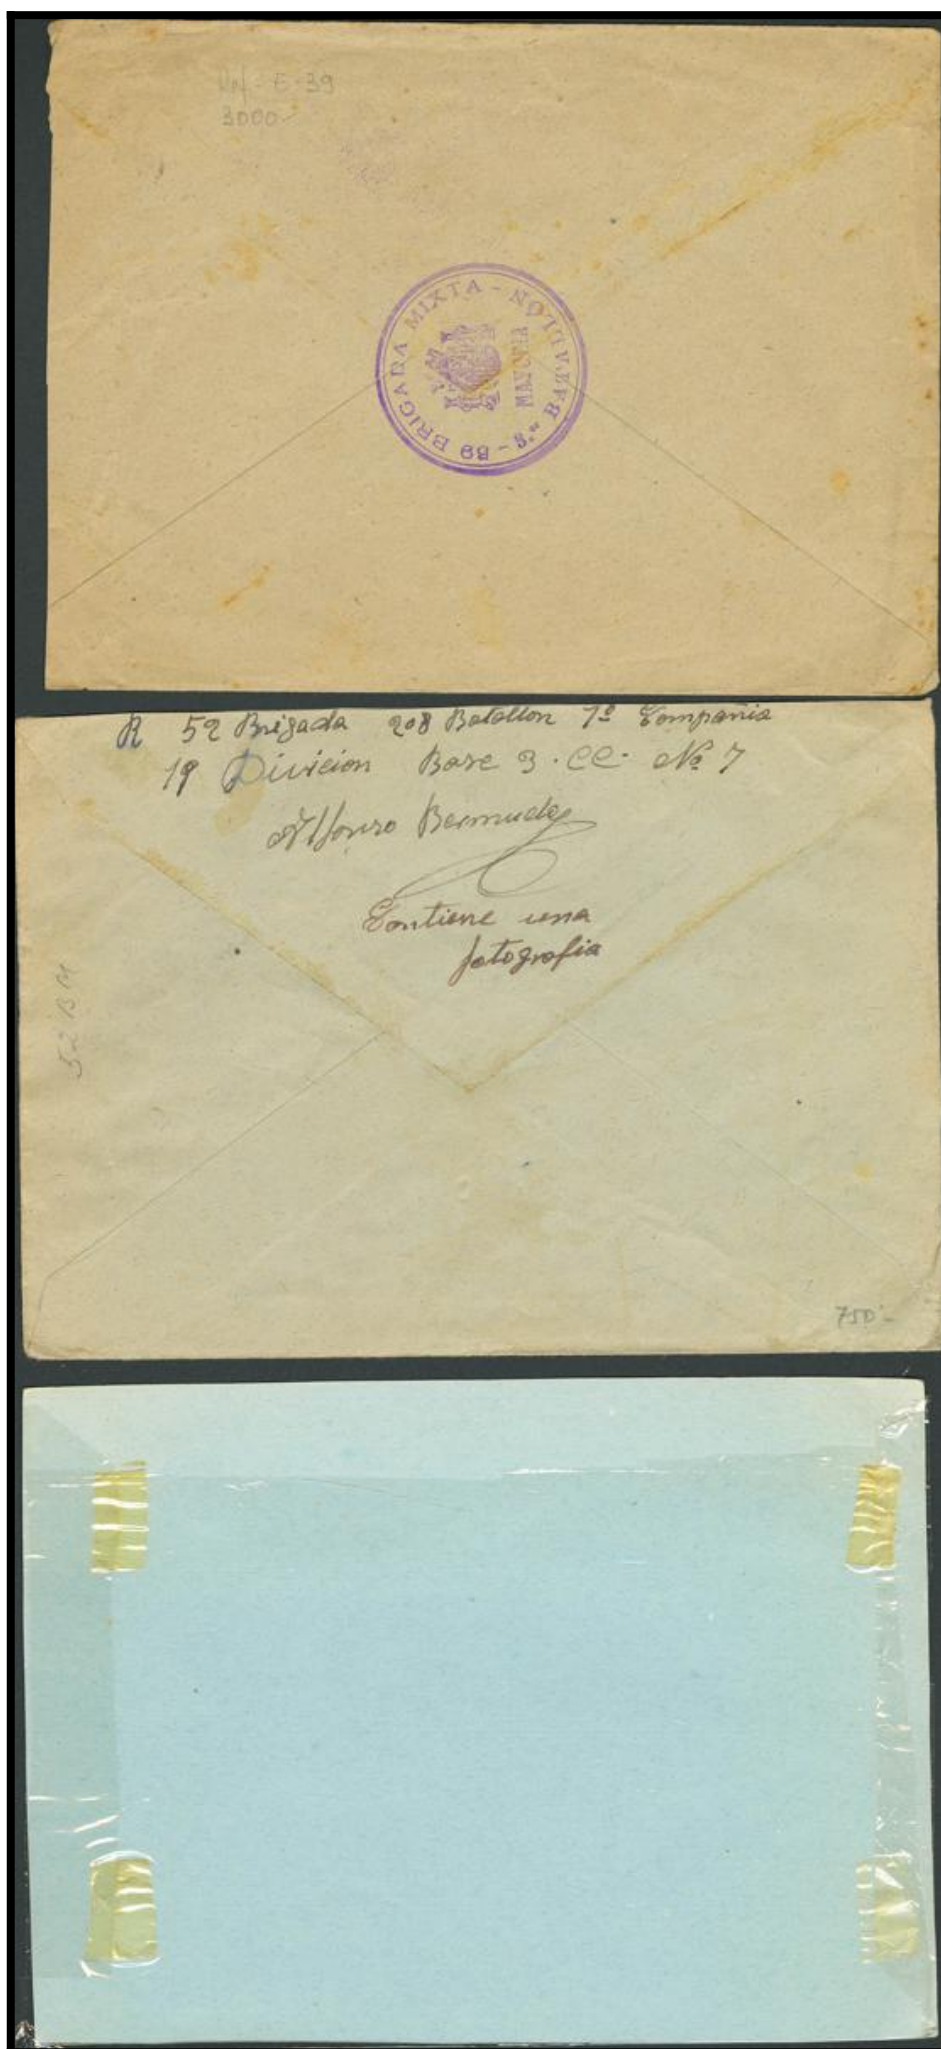 E-39
3000
BRIGADA MIXTA - BATALLON
MAYORIA
R 52 Brigada 208 Batallon 1º Compania
19 Divicion Base 3. CC. Nº 7
Alfonso Bermudez
Contiene una
fotografia
52 BM
750-